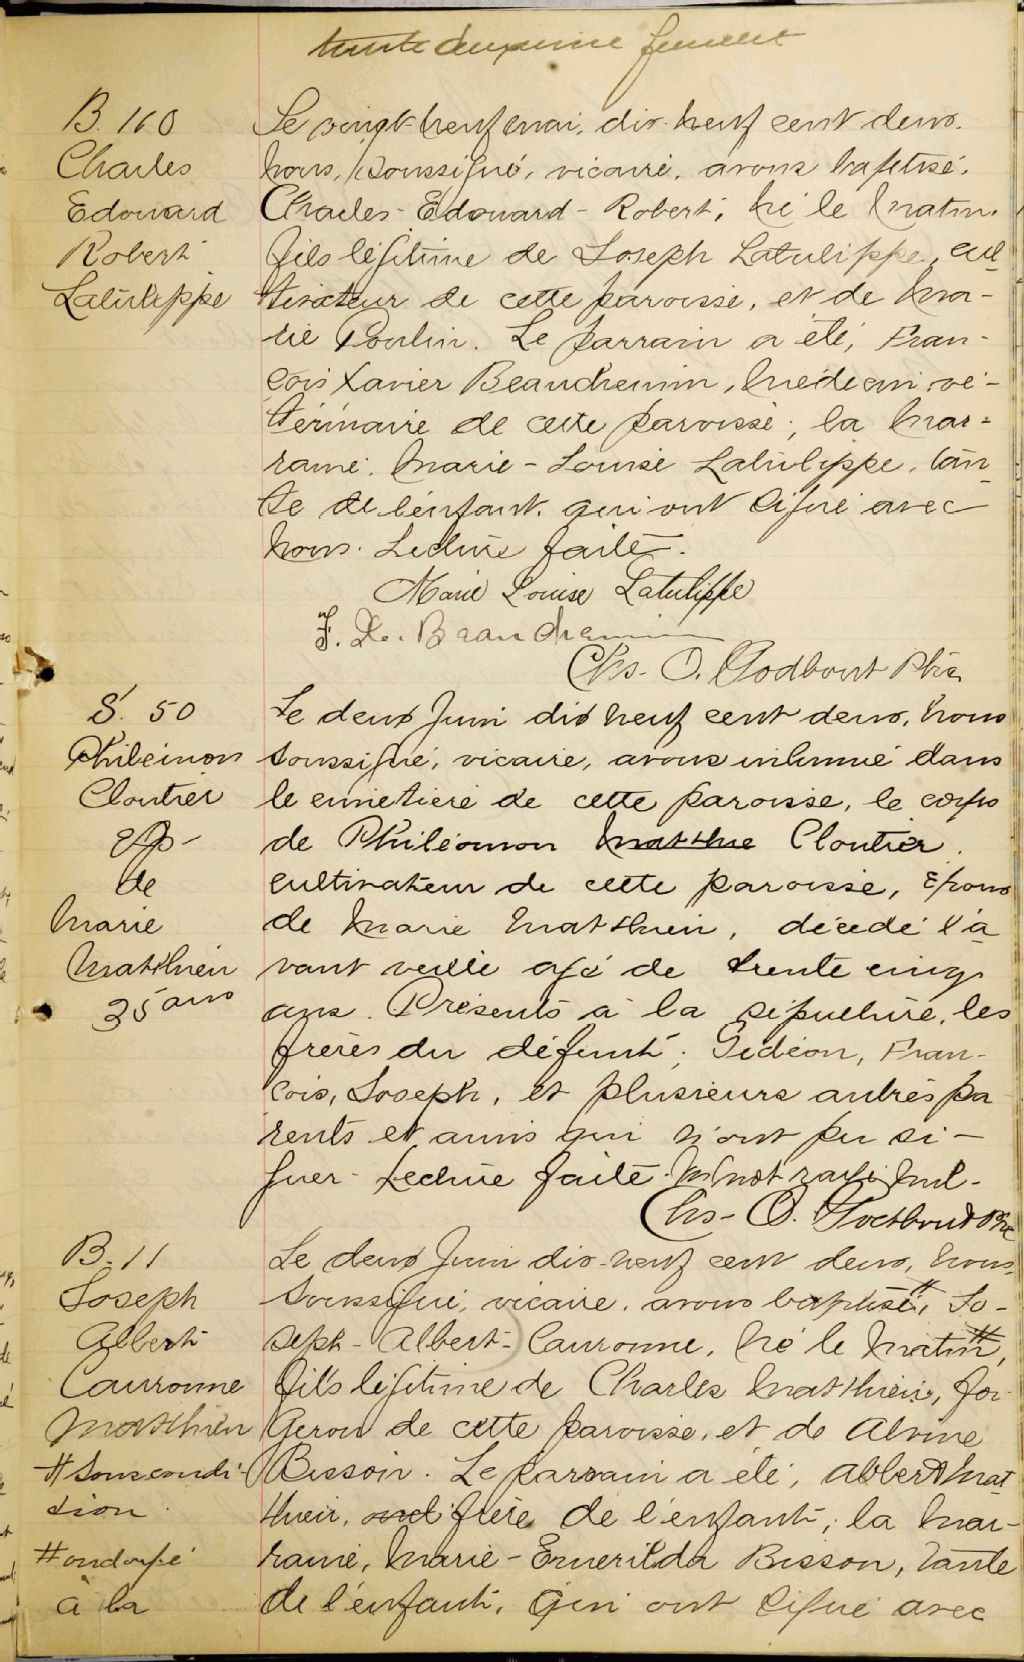 trente deuxième feuillet
B. 110
Charles
Edouard
Robert
Latulippe
Le vingt-neuf mai, dix-neuf cent deux,
nous, soussigné, vicaire, avons baptisé,
Charles-Edouard-Robert, né le matin,
fils légitime de Joseph Latulippe, cul
tivateur de cette paroisse, et de Ma-
rie Poulin. Le parrain a été, Fran-
çois Xavier Beauchemin, médecin vé-
térinaire de cette paroisse; la mar-
raine, Marie-Louise Latulippe, tan
te de l'enfant, qui ont signé avec
nous. Lecture faite.
Marie Louise Latulippe
F. X. Beauchemin
Chs. O. Godbout Ptre
S. 50
Philémon
Cloutier
ép-
de
Marie
Matthieu
35 ans
Le deux Juin dix neuf cent deux, nous
soussigné, vicaire, avons inhumé dans
le cimetière de cette paroisse, le corps
de Philémon Matthie Cloutier,
cultivateur de cette paroisse, époux
de Marie Matthieu, décédé l'a
vant veille agé de trente cinq
ans. Présents à la sépulture, les
frères du défunt; Gédéon, Fran-
çois, Joseph, et plusieurs autres pa
rents et amis qui n'ont pu si-
gner. Lecture faite. Un mot rayé nul.
Chs. O. Godbout Ptre
B. 11
Joseph
Albert
Lauronne
Matthieu
# sous condi
tion.
# ondoyé
à la
Le deux Juin dix-neuf cent deux, nous,
soussigné, vicaire, avons baptisé, # Jo-
seph-Albert-Lauronne, né le matin, #
fils légitime de Charles Matthieu, for-
geron de cette paroisse, et de Alvine
Bisson. Le parrain a été, Albert Mat
thieu, frère de l'enfant; la mar-
raine, Marie-Emerilda Bisson, tante
de l'enfant, qui ont signé avec